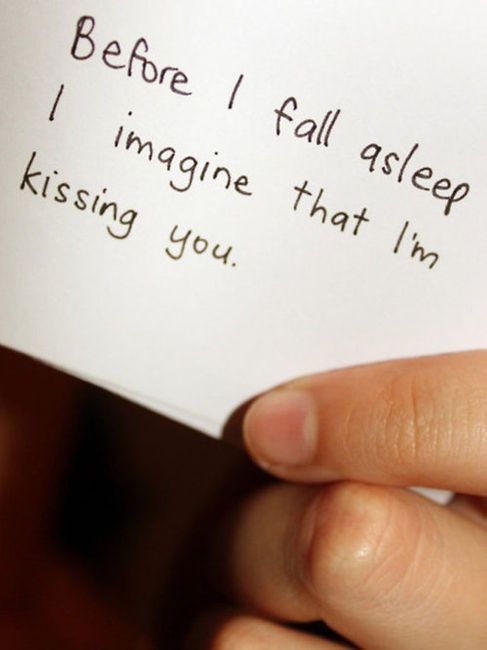 Before I fall asleep
I imagine that I'm
kissing you.